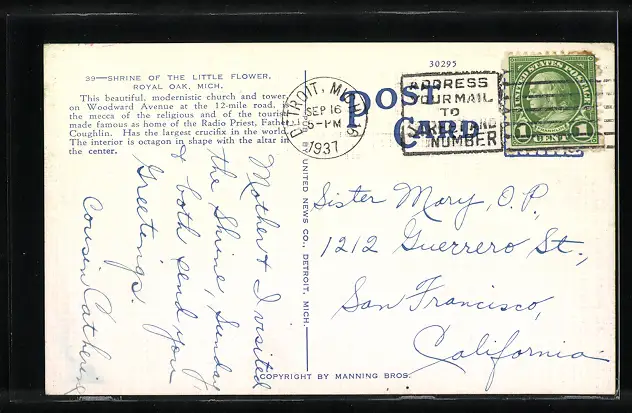 39—SHRINE OF THE LITTLE FLOWER,
ROYAL OAK, MICH.
This beautiful, modernistic church and tower
on Woodward Avenue at the 12-mile road, is
the mecca of the religious and of the tourist,
made famous as home of the Radio Priest, Father
Coughlin. Has the largest crucifix in the world.
The interior is octagon in shape with the altar in
the center.
Mother & I visited
the Shrine, Sunday,
& both send you
Greetings.
Cousin Catherine
BY UNITED NEWS CO., DETROIT, MICH.
30295
POST
CARD
DETROIT, MICH.
SEP 16
5-PM
1937
ADDRESS
YOUR MAIL
TO
STREET AND
NUMBER
UNITED STATES POSTAGE
1 CENT 1
Sister Mary, O.P.,
1212 Guerrero St.,
San Francisco,
California
COPYRIGHT BY MANNING BROS.